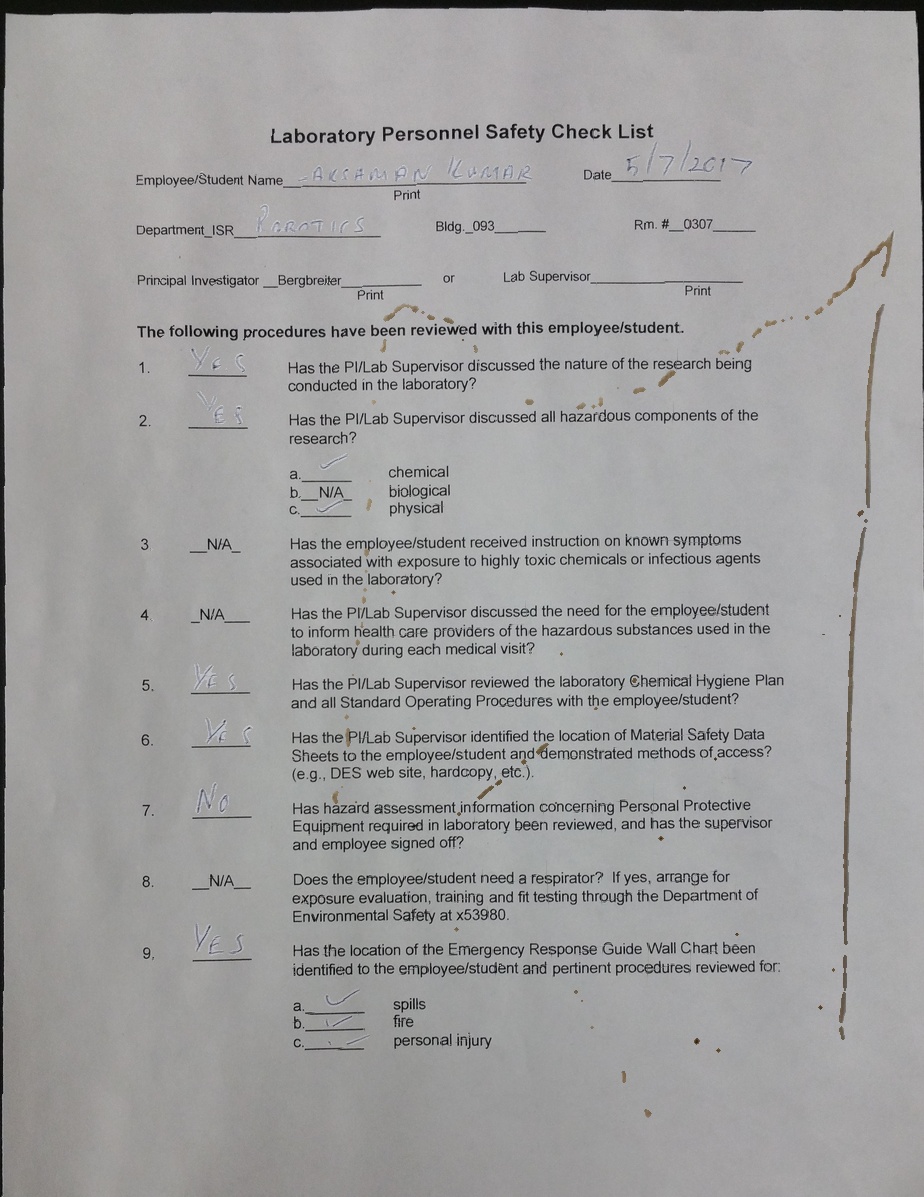 Laboratory Personnel Safety Check List
Employee/Student Name KUMAR Date 5/7/2017
Print
Department_ISR ROBOTICS Bldg._093 Rm. #__0307
Principal Investigator __Bergbreiter or Lab Supervisor
Print Print
The following procedures have been reviewed with this employee/student.
1. YES Has the PI/Lab Supervisor discussed the nature of the research being
conducted in the laboratory?
2. YES Has the PI/Lab Supervisor discussed all hazardous components of the
research?
a. ✓ chemical
b. N/A biological
c. ✓ physical
3 N/A Has the employee/student received instruction on known symptoms
associated with exposure to highly toxic chemicals or infectious agents
used in the laboratory?
4. N/A Has the PI/Lab Supervisor discussed the need for the employee/student
to inform health care providers of the hazardous substances used in the
laboratory during each medical visit?
5. YES Has the PI/Lab Supervisor reviewed the laboratory Chemical Hygiene Plan
and all Standard Operating Procedures with the employee/student?
6. YES Has the PI/Lab Supervisor identified the location of Material Safety Data
Sheets to the employee/student and demonstrated methods of access?
(e.g., DES web site, hardcopy, etc.).
7. NO Has hazard assessment information concerning Personal Protective
Equipment required in laboratory been reviewed, and has the supervisor
and employee signed off?
8. N/A Does the employee/student need a respirator? If yes, arrange for
exposure evaluation, training and fit testing through the Department of
Environmental Safety at x53980.
9. YES Has the location of the Emergency Response Guide Wall Chart been
identified to the employee/student and pertinent procedures reviewed for:
a. ✓ spills
b. ✓ fire
c. ✓ personal injury